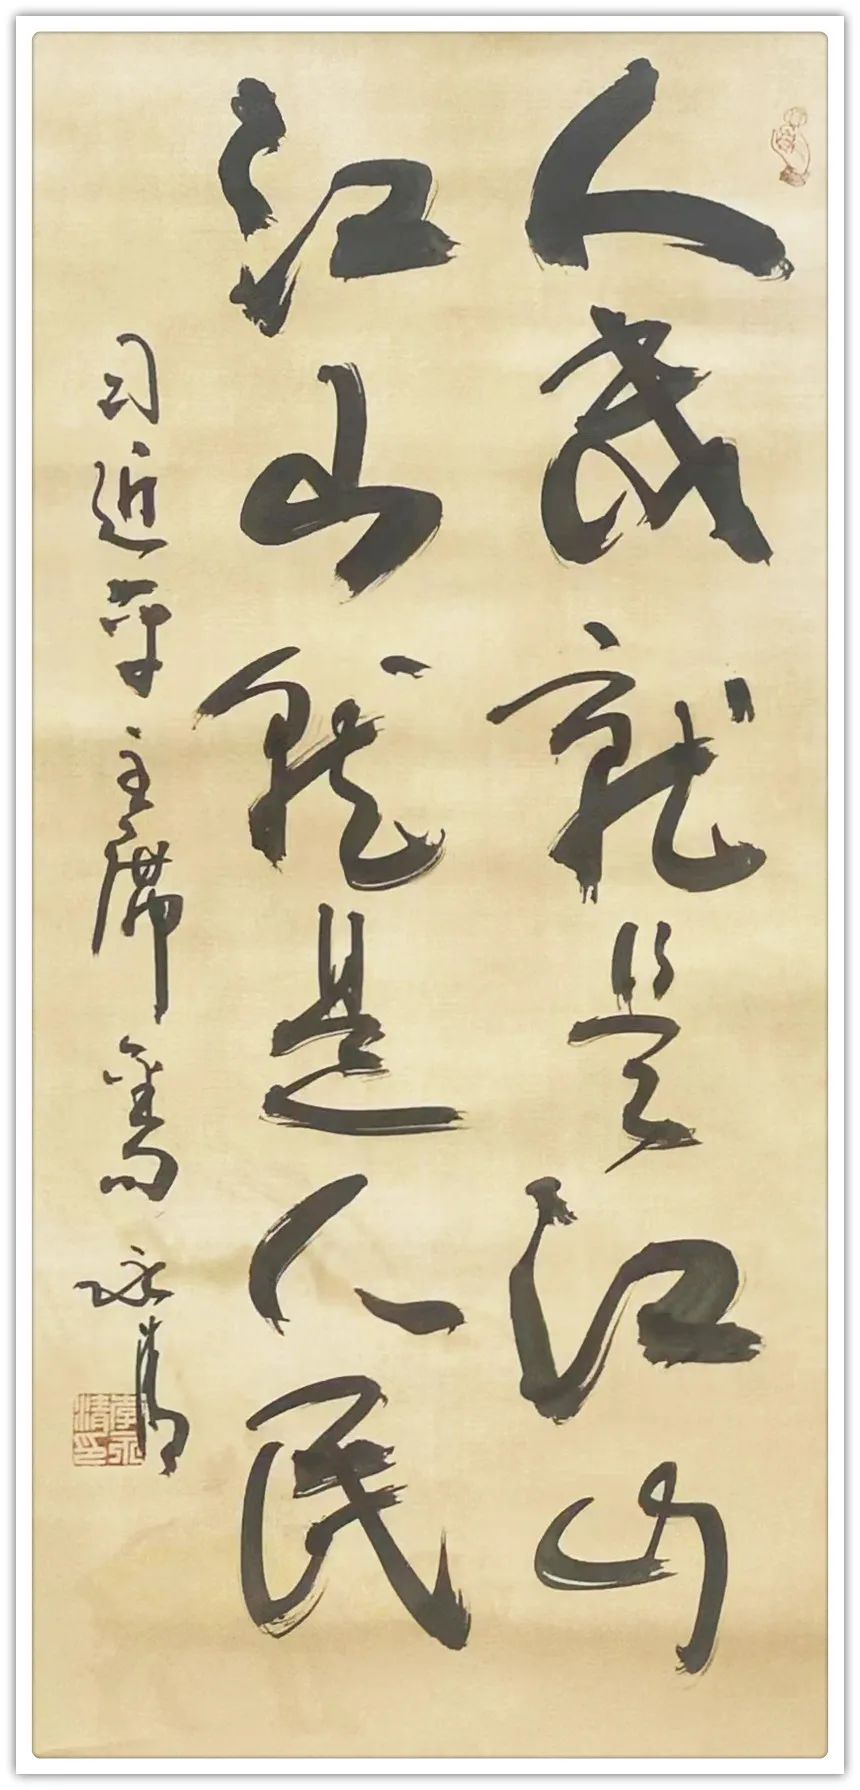 人民就是江山
江山就是人民
习近平主席 永清